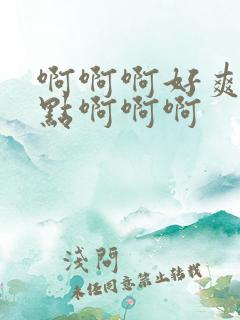 啊啊啊好爽
點啊啊啊
淺問
未经同意禁止转载